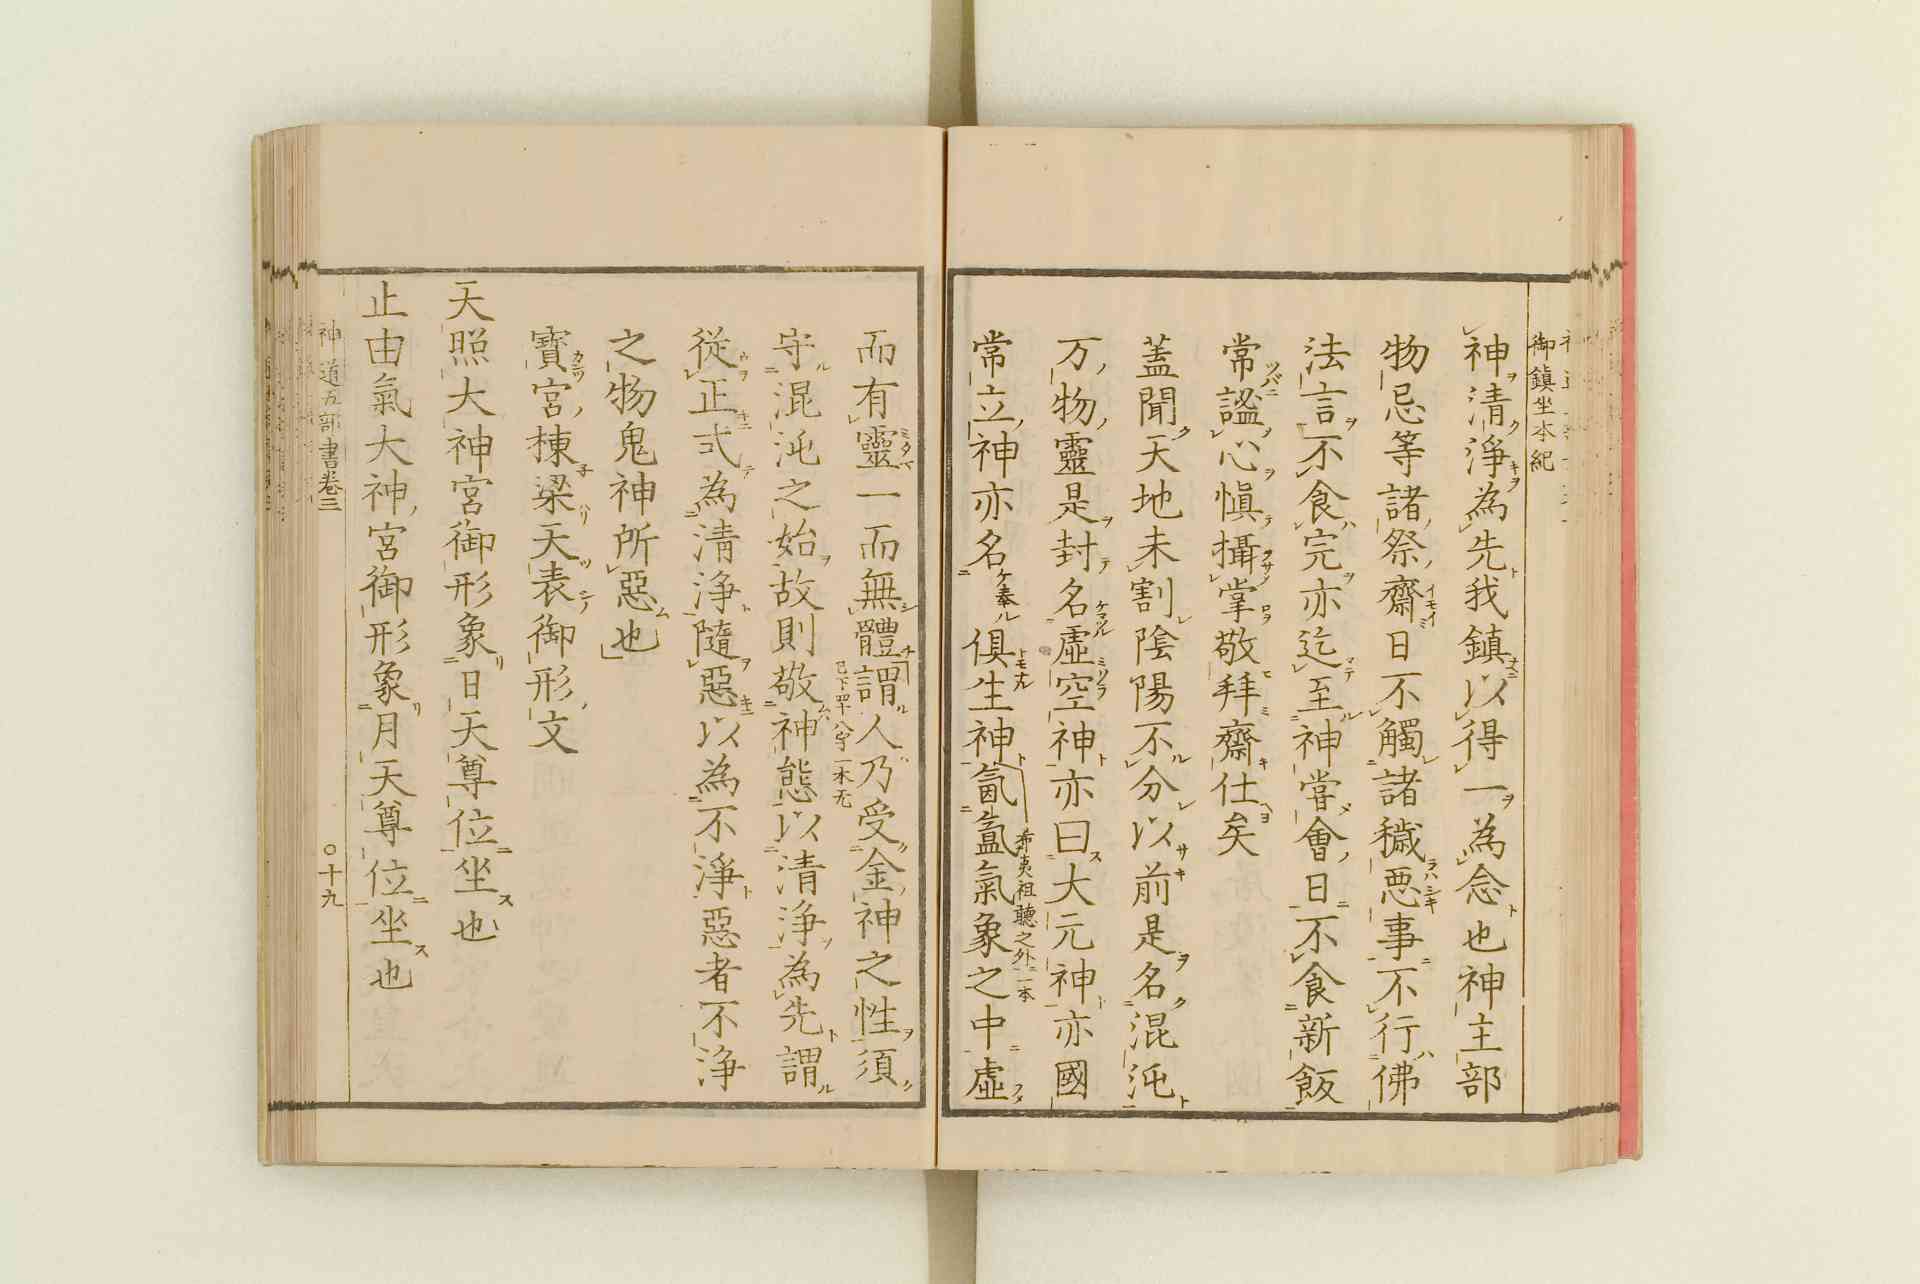 御鎮坐本紀
神清淨為先我鎮以得一為念也神主部
物忌等諸祭齋日不觸諸穢悪事不行佛
法言不食完亦迄至神甞會日不食新飯
常謐心愼攝掌敬拜齋仕矣
蓋聞天地未割陰陽不分以前是名混沌
万物靈是封名虛空神亦曰大元神亦國
常立神亦名ケ奉ル俱生神氤氳氣象之中虛
希夷視聽之外一本
而有靈一而無體謂人乃受金神之性須
已下四十八字一本无
守混沌之始故則敬神態以清淨為先謂
從正式為清淨隨惡以為不淨惡者不浄
之物鬼神所惡也
寶宮棟梁天表御形文
天照大神宮御形象日天尊位坐也
止由氣大神宮御形象月天尊位坐也
神道五部書卷三
○十九